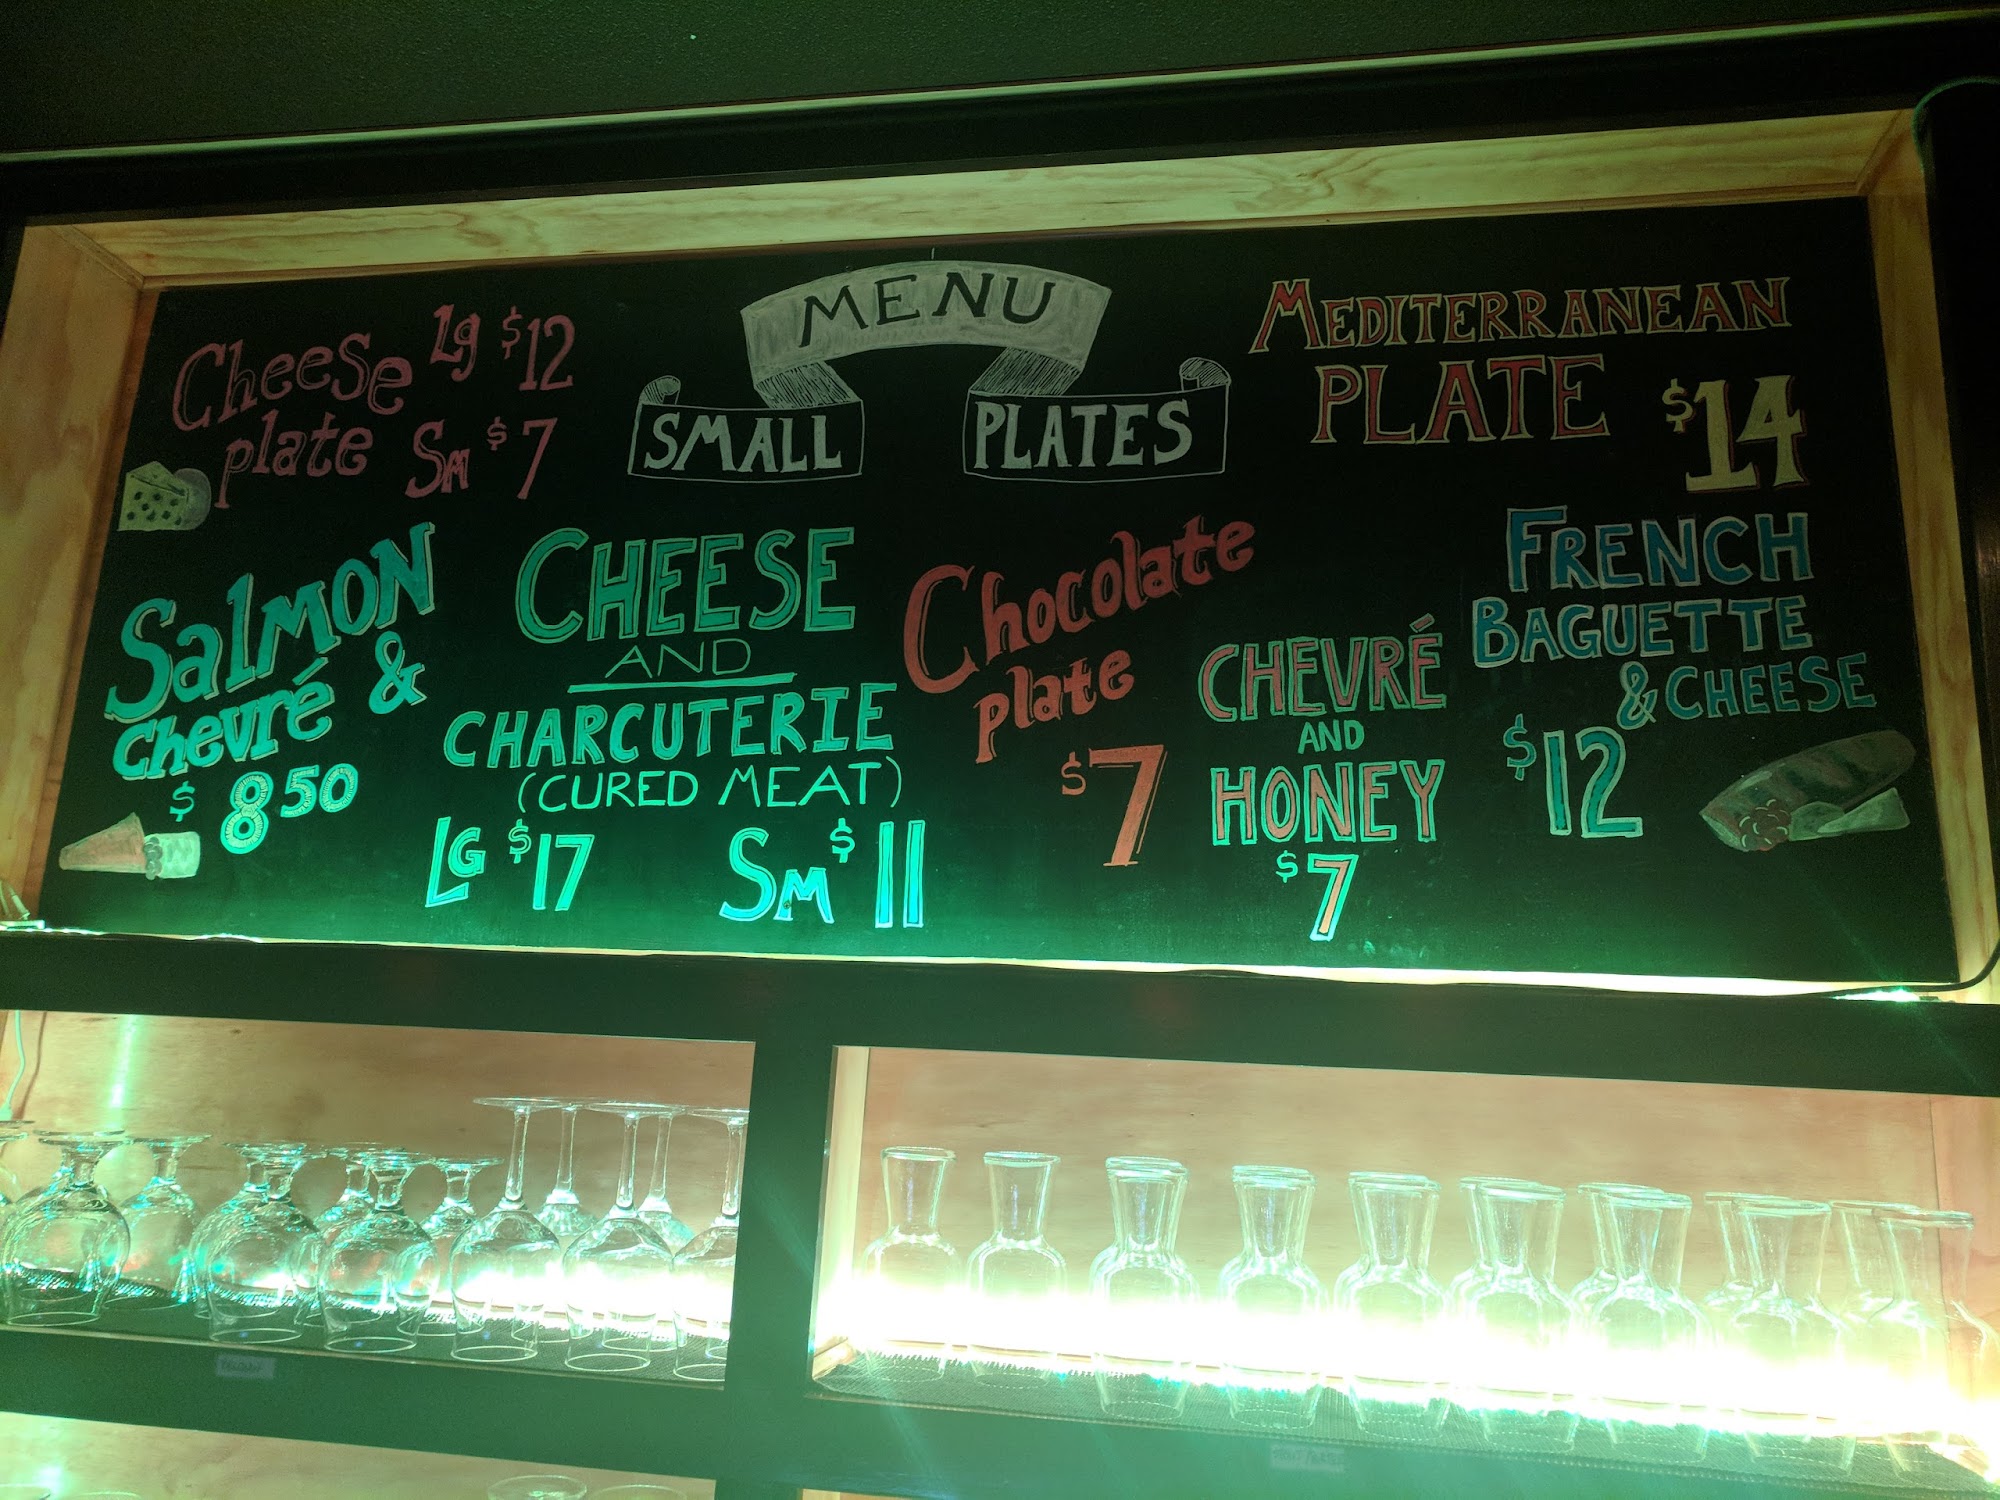 MENU
SMALL PLATES
Cheese Lg $12
plate Sm $7
MEDITERRANEAN
PLATE $14
SalmON
Chevré &
$8 50
CHEESE
AND
CHARCUTERIE
(CURED MEAT)
LG $17 SM $11
Chocolate
plate
$7
CHEVRÉ
AND
HONEY
$7
FRENCH
BAGUETTE
& CHEESE
$12